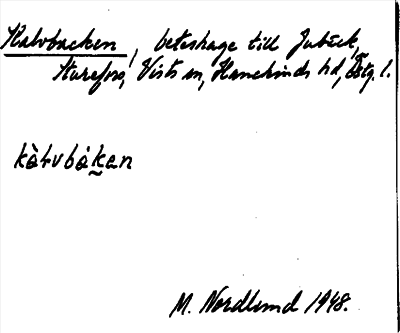 Kalvbacken, beteshage till Jubäck,
Sturefors, Vists sn, Hanekinds hd, Östg. l.
kàlvbák̮an
M. Nordlund 1948.